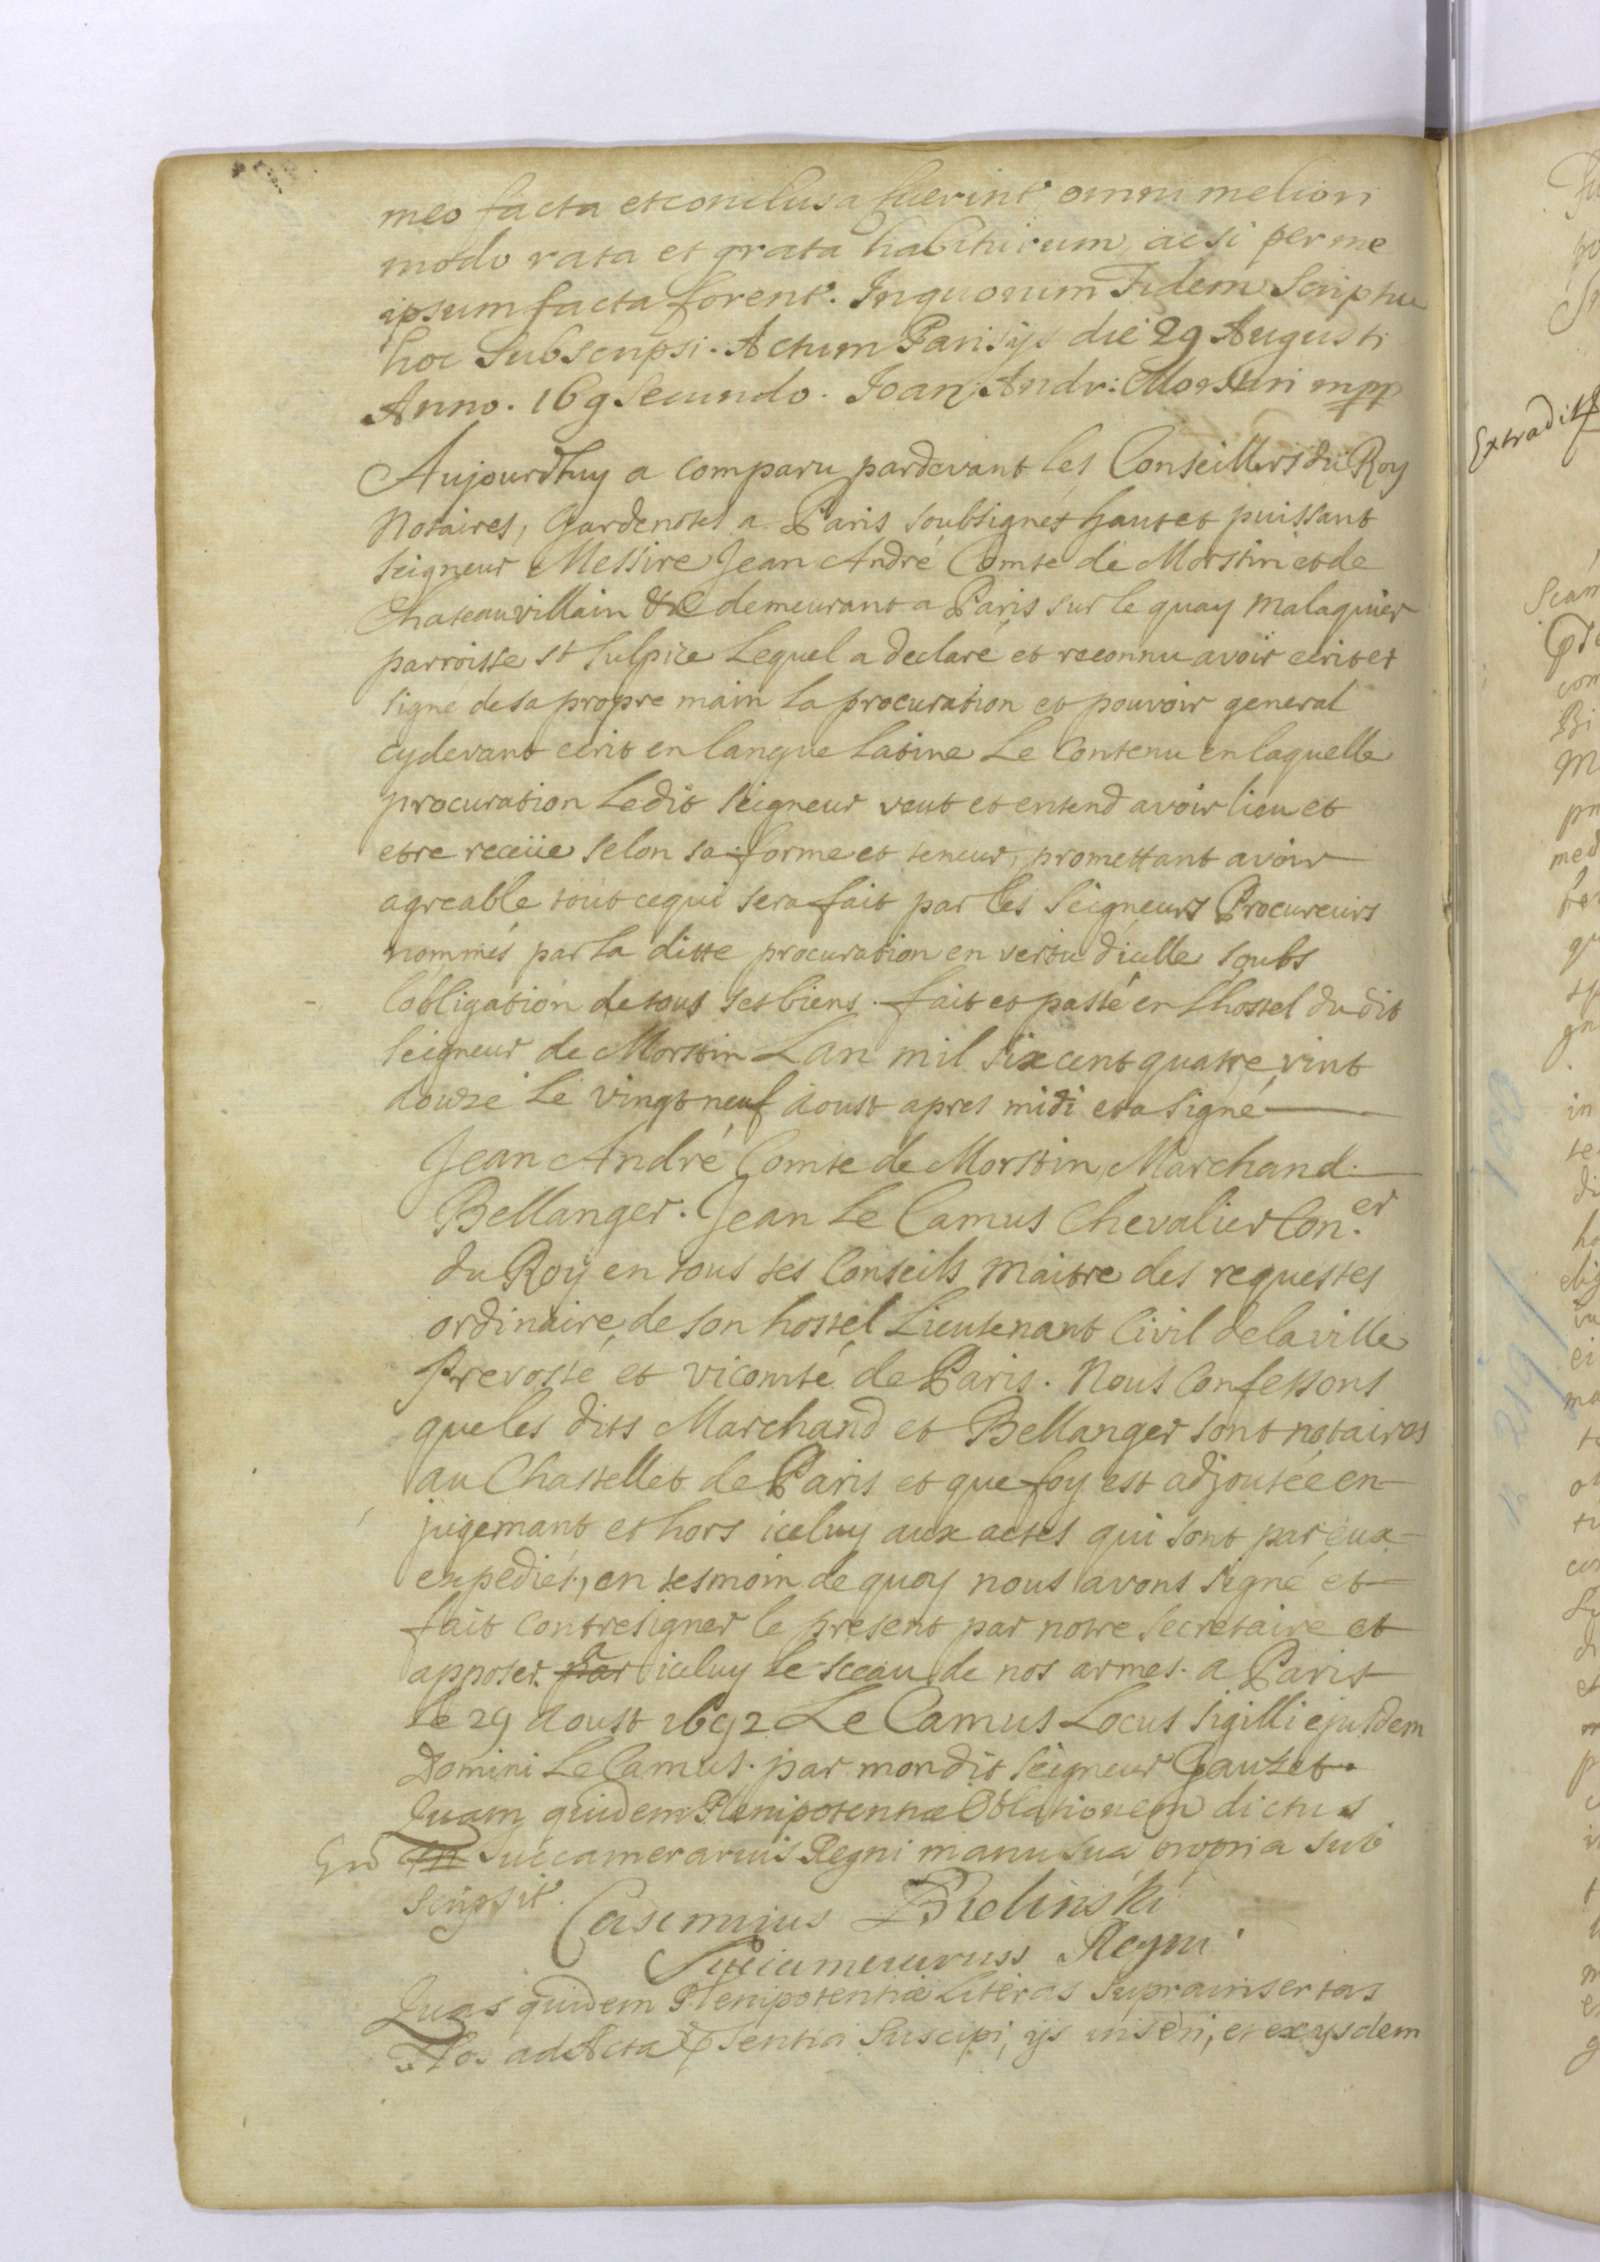 meo facta et conclusa fuerint omni meliori
modo rata et grata habiturum, ac si per me
ipsum facta forent. In quorum Fidem Scriptu
hoc Subscripsi. Actum Parisijs die 29 Augusti
Anno. 169 Secundo. Joan: Andr: Morstin mpp
Aujourdhuy a comparu pardevant les Conseillers du Roy
Notaires, Gardenotes a Paris soubsignés haut et puissant
Seigneur Messire Jean André Comte de Morstin et de
Chateauvillain &c demeurant a Paris sur le quay Malaquier
parroisse st Sulpice Lequel a declaré et reconnu avoir ecrit et
signé de sa propre main la procuration et pouvoir general
cydevant ecrit en langue latine Le Contenu en laquelle
procuration Ledit Seigneur veut et entend avoir lieu et
etre receüe selon sa forme et teneur, promettant avoir
agreable tout cequi sera fait par les Seigneurs Procureurs
nommés par la ditte procuration en vertu d'icelle soubs
l'obligation de tous ses biens. fait et passé en Lhostel du dit
Seigneur de Morstin Lan mil six cent quatre vint
douze Le vingt neuf aoust apres midi et a signé
Jean André Comte de Morstin, Marchand.
Bellanger. Jean Le Camus Chevalier Con.er
du Roÿ en tous ses Conseils, Maitre des requestes
ordinaire de son hostel Lieutenant Civil de la ville
Prevosté et vicomté de Paris. Nous Confessons
que les dits Marchand et Bellanger sont notaires
au Chastellet de Paris et que foy est adjoutée en
jugemant et hors iceluy aux actes qui sont par eux
expediés, en tesmoin de quoy nous avons signé et
fait contresigner le present par notre Secretaire et
apposer par iceluy le sceau de nos armes. a Paris
le 29 Aoust 1692 Le Camus Locus Sigilli ejusdem
Domini Le Camus. par mondit Seigneur Gauzet.
Quam quidem Plenipotentiæ Oblationem dictus
Succamerarius Regni manu sua propria sub
scripsit. Casimirus Bielinski
Succamerarius Regni
Quas quidem Plenipotentiæ Literas Suprainsertas
Nos ad Acta Pñtia Suscipi, ijs inseri, et ex ijsdem
Extradit